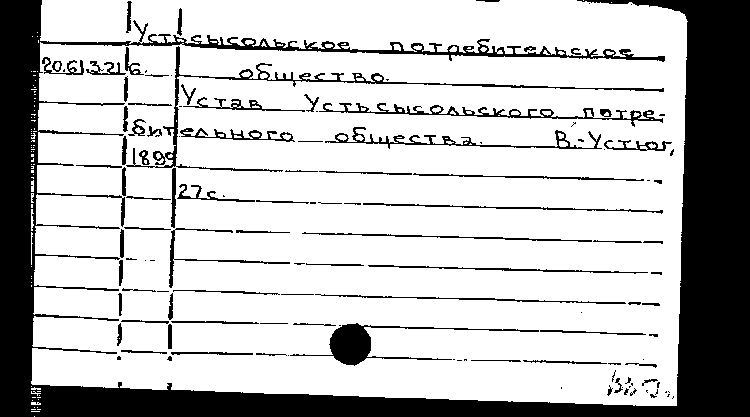 Устьсысольское потребительское
20.61.3.216. общество.
Устав Устьсысольского потре-
бительного общества. В.-Устюг,
1899
27 с.